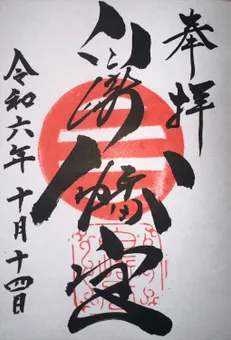 奉拝
八幡宮
令和六年 十月十四日